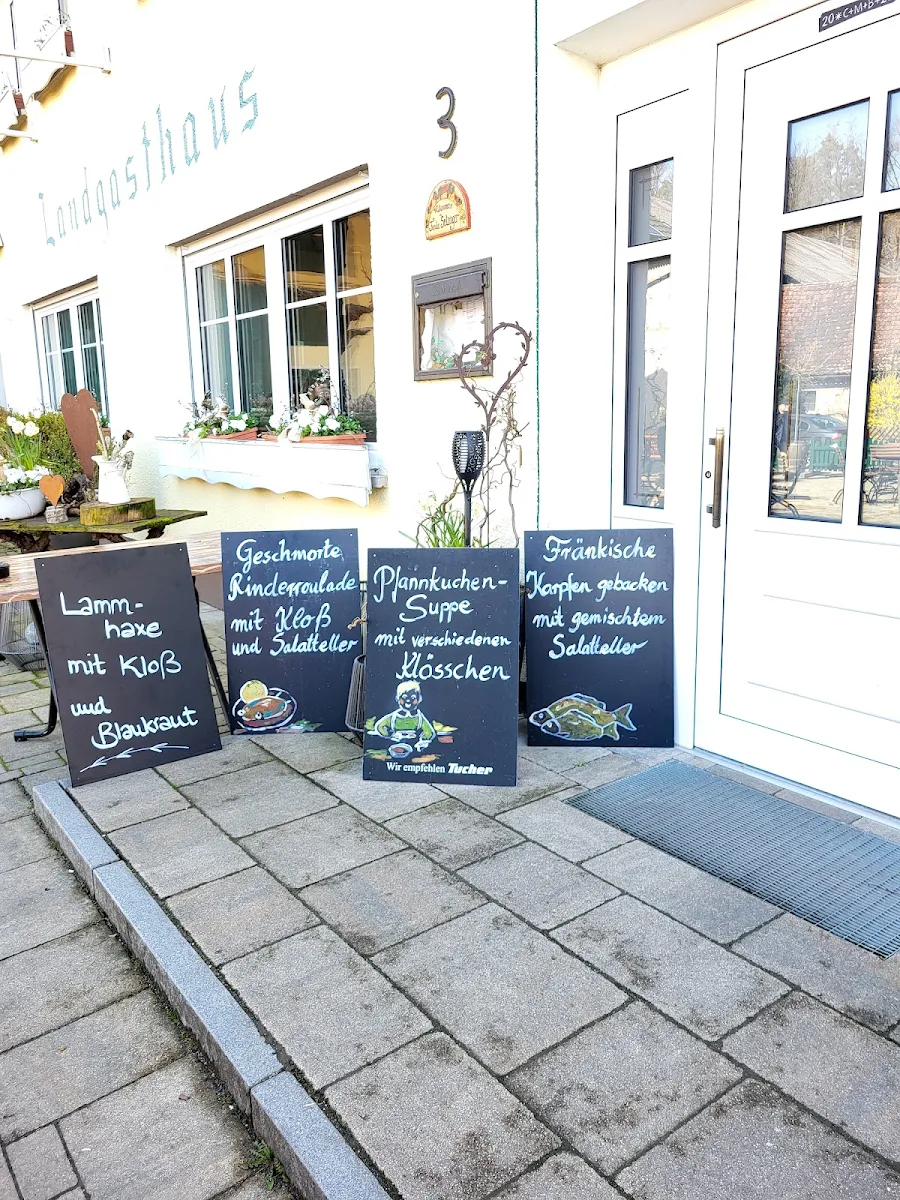 20*C+M+B+2
Landgasthaus
3
Lamm-
haxe
mit Kloß
und
Blaukraut
Geschmorte
Rinderroulade
mit Kloß
und Salatteller
Pfannkuchen-
Suppe
mit verschiedenen
Klösschen
Wir empfehlen Tucher
Fränkische
Karpfen gebacken
mit gemischtem
Salatteller